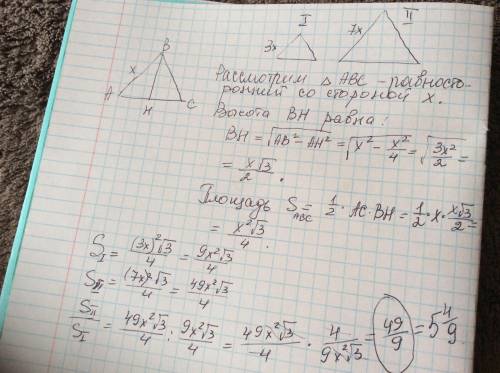 I
II
3x
7x
B
x
A
H
C
Рассмотрим △ ABC - равносто-
ронний со стороной x.
Высота BH равна:
BH = √(AB² - AH²) = √(x² - x²/4) = √(3x²/2) =
= x√3/2.
Площадь S ABC = 1/2 · AC · BH = 1/2 · x · x√3/2 =
= x²√3/4.
S I = (3x)²√3/4 = 9x²√3/4
S II = (7x)²√3/4 = 49x²√3/4
S II/S I = 49x²√3/4 : 9x²√3/4 = 49x²√3/4 · 4/9x²√3 = 49/9 = 5 4/9